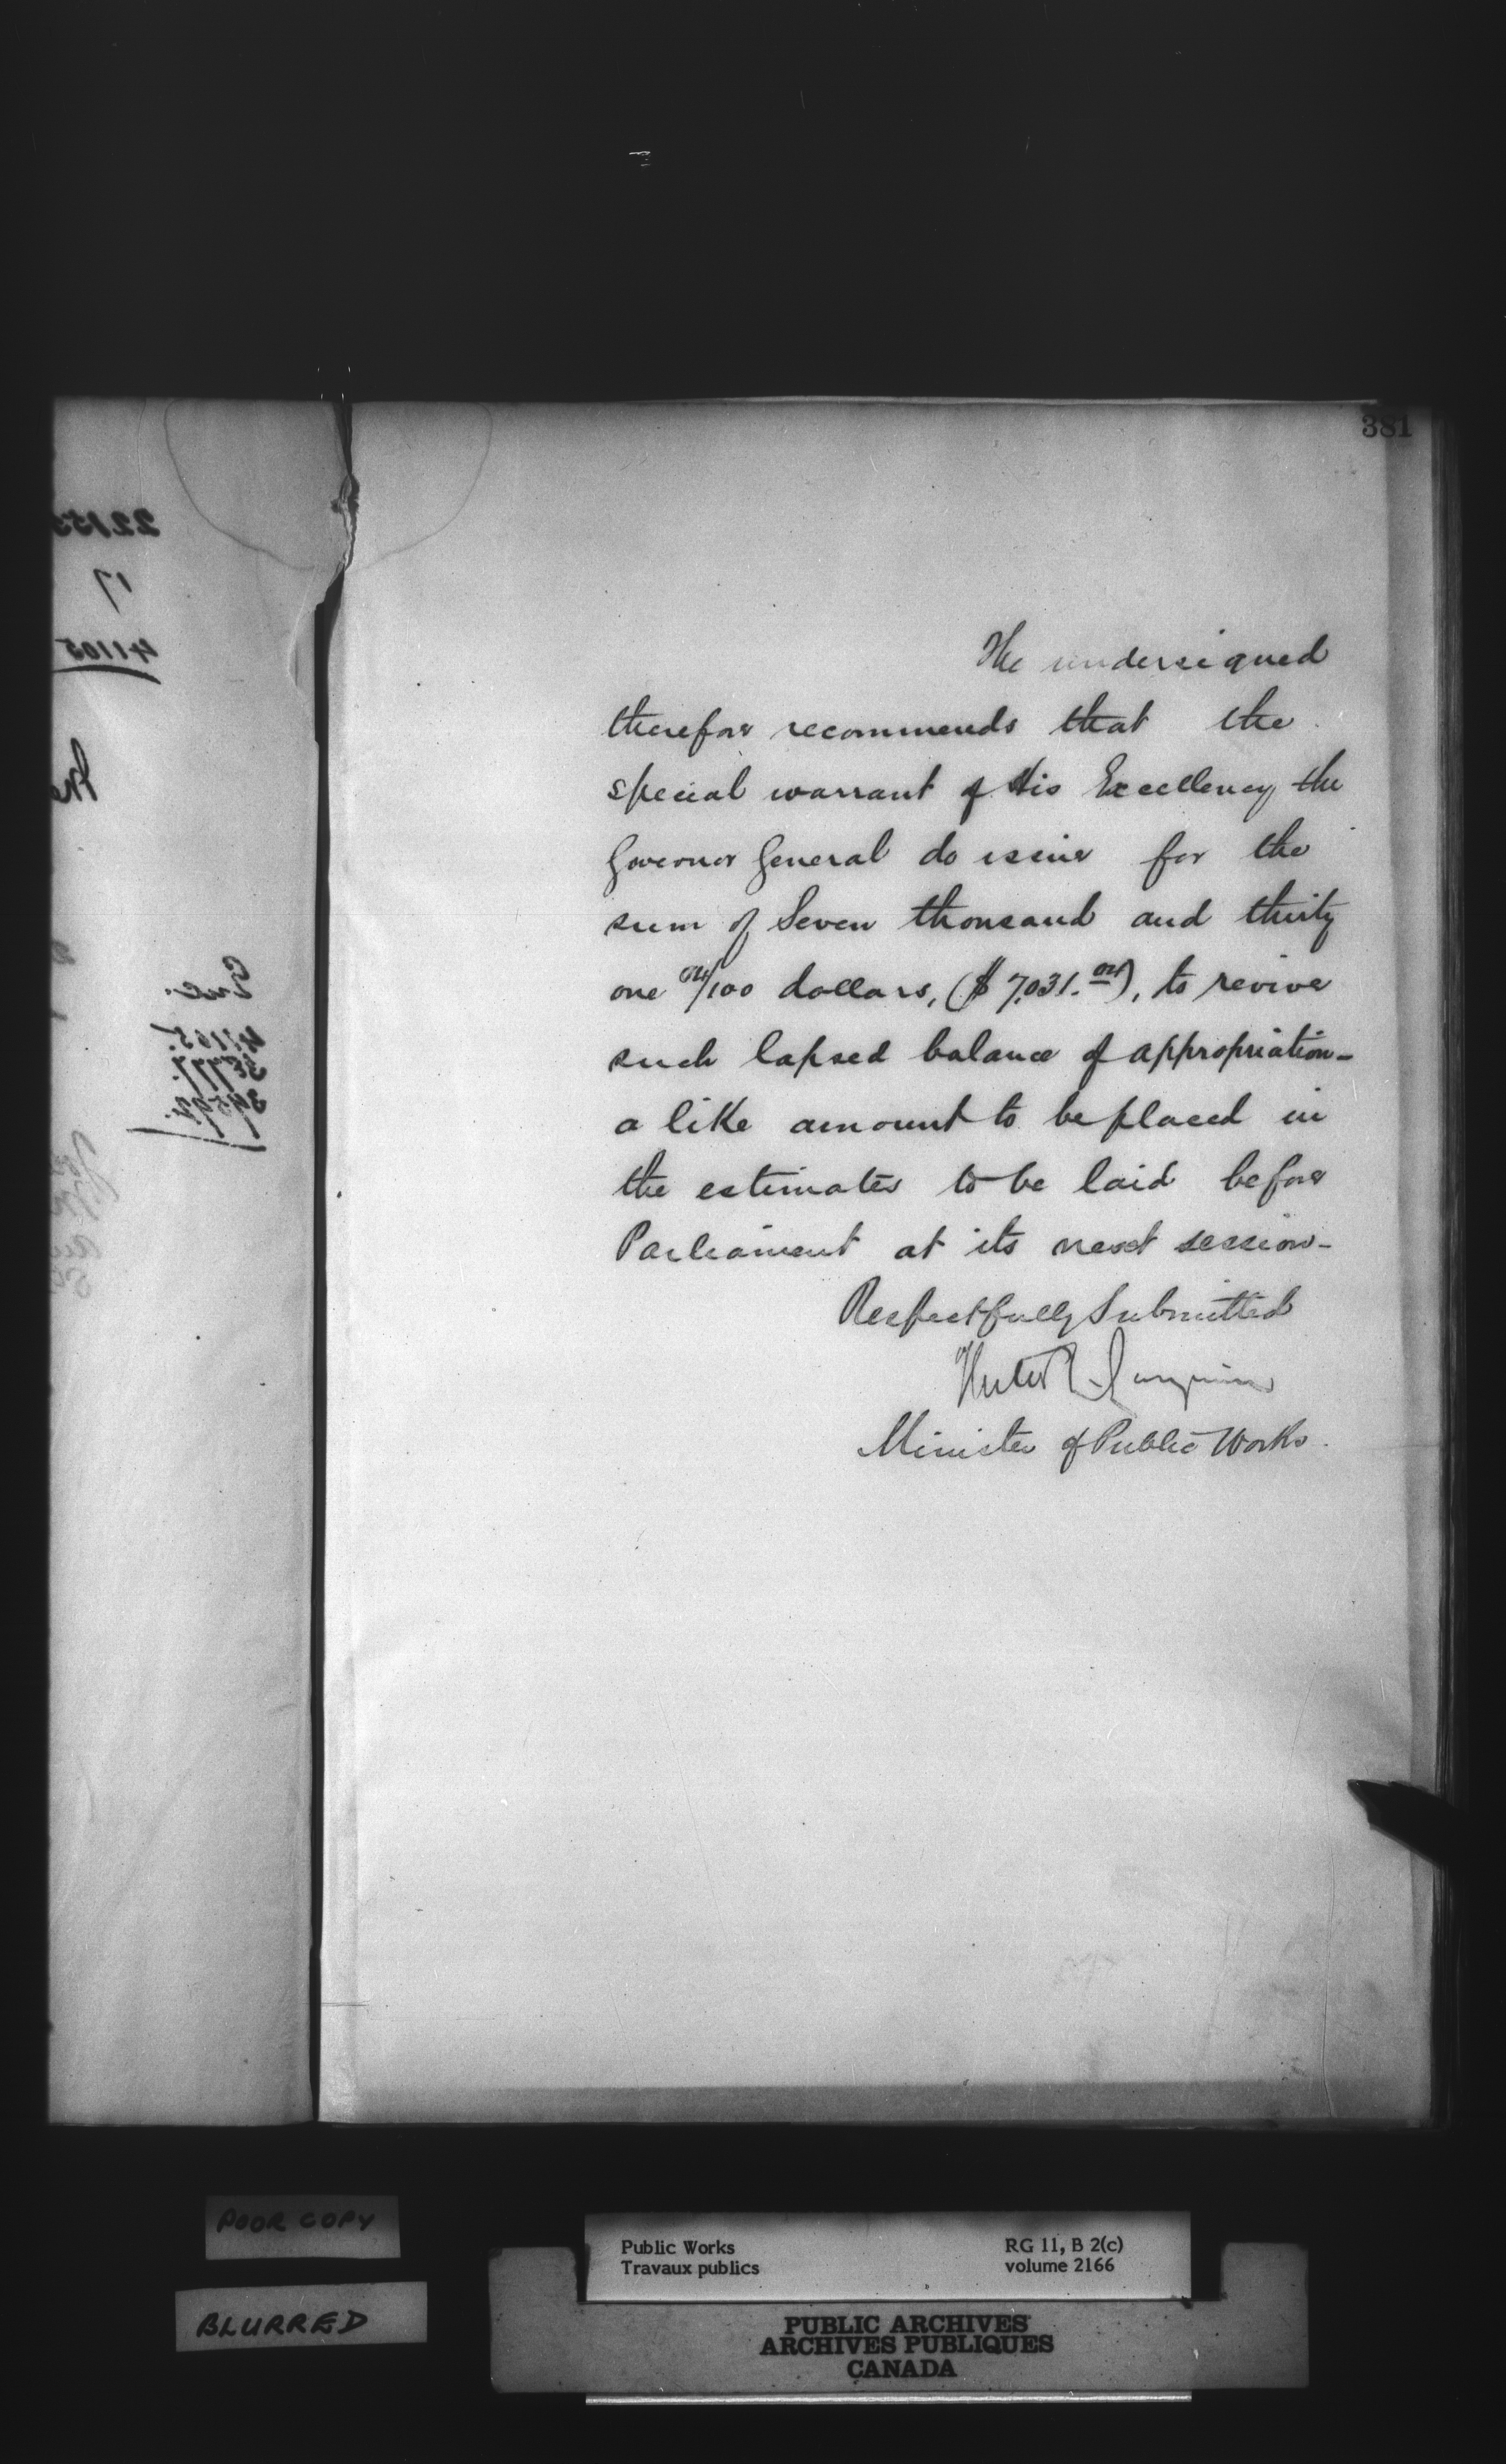 381
The undersigned
therefore recommends that the
special warrant of His Excellency the
Governor General do issue for the
sum of Seven thousand and thirty
one 04/100 dollars, ($7,031.04), to revive
such lapsed balance of appropriation -
a like amount to be placed in
the estimates to be laid before
Parliament at its next session -
Respectfully Submitted
Minister of Public Works.
41105
Enc.
41105.
POOR COPY
BLURRED
Public Works
Travaux publics
RG 11, B 2(c)
volume 2166
PUBLIC ARCHIVES
ARCHIVES PUBLIQUES
CANADA